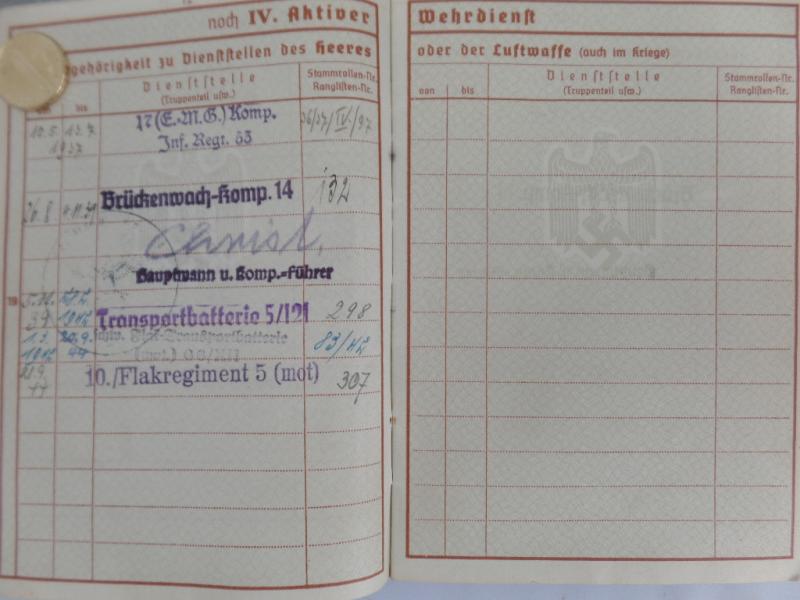 noch IV. Aktiver
gehörigkeit zu Dienststellen des Heeres
bis
Dienststelle
(Truppenteil usw.)
Stammrollen-Nr.
Ranglisten-Nr.
10.5. 13.7.
1937
17 (E.-M.G.) Komp.
Inf. Regt. 53
36/37/IV/97
26.8
Brückenwach-Komp. 14
132
Christ.
Hauptmann u. Komp.-Führer
19
39
Transportbatterie 5/121
298
1.3. 20.9.
schw. Flak-Transportbatterie
1942 44
(mot.)
83/42
21.9.
44
10./Flakregiment 5 (mot)
307
Wehrdienst
oder der Luftwaffe (auch im Kriege)
von
bis
Dienststelle
(Truppenteil usw.)
Stammrollen-Nr.
Ranglisten-Nr.